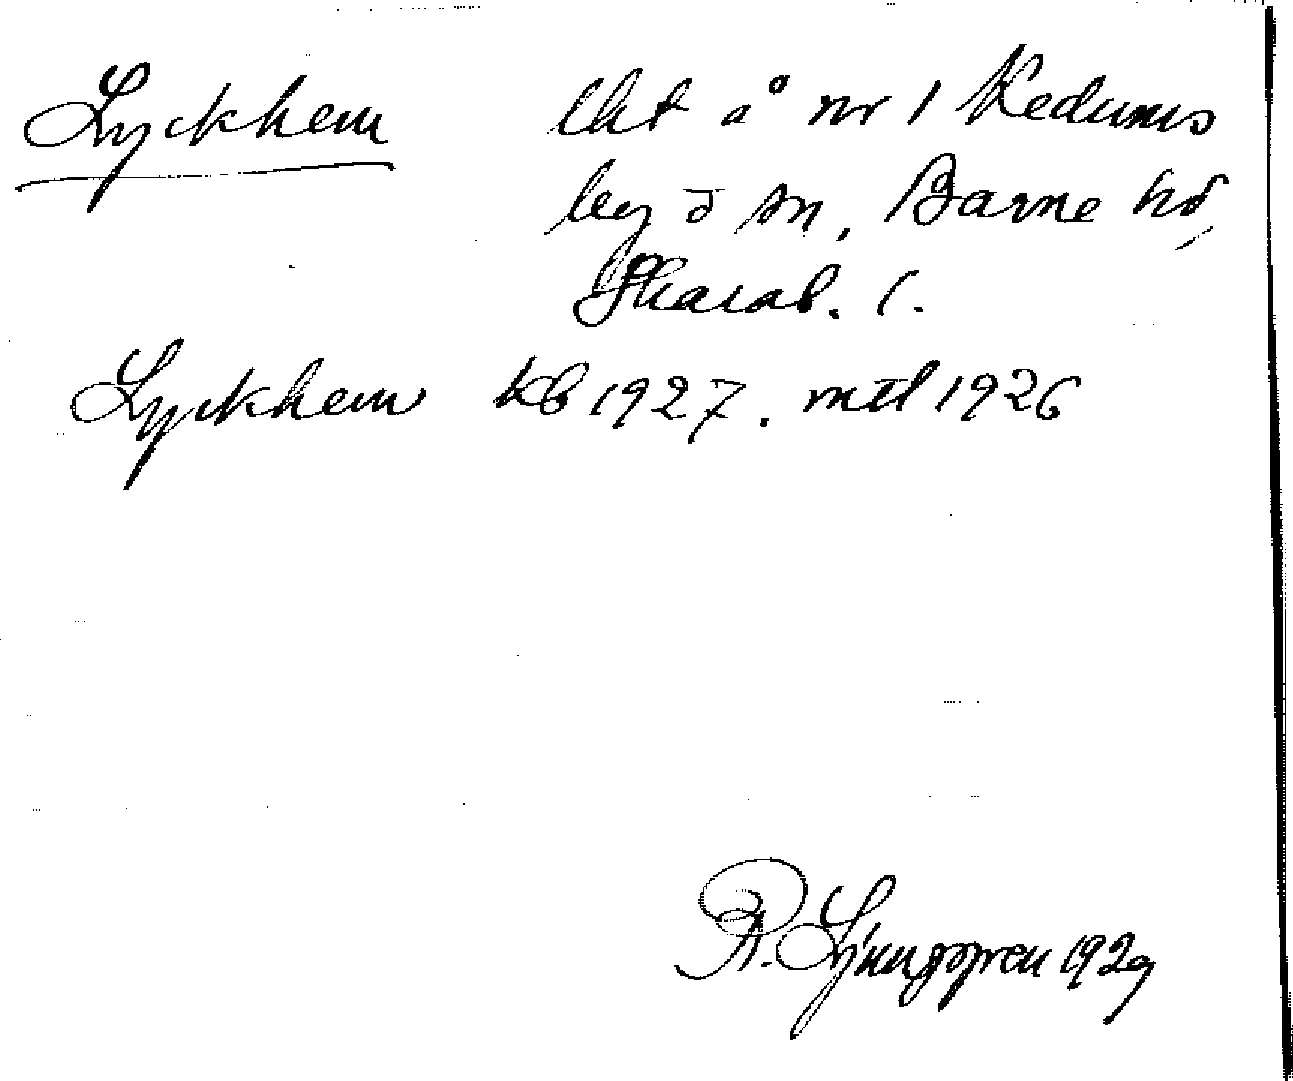 Lyckhem lht å nr 1 Kedums
by o sn, Barne hd,
Skarab. l.
Lyckhem kb 1927. mtl 1926
R. Ljunggren 1929